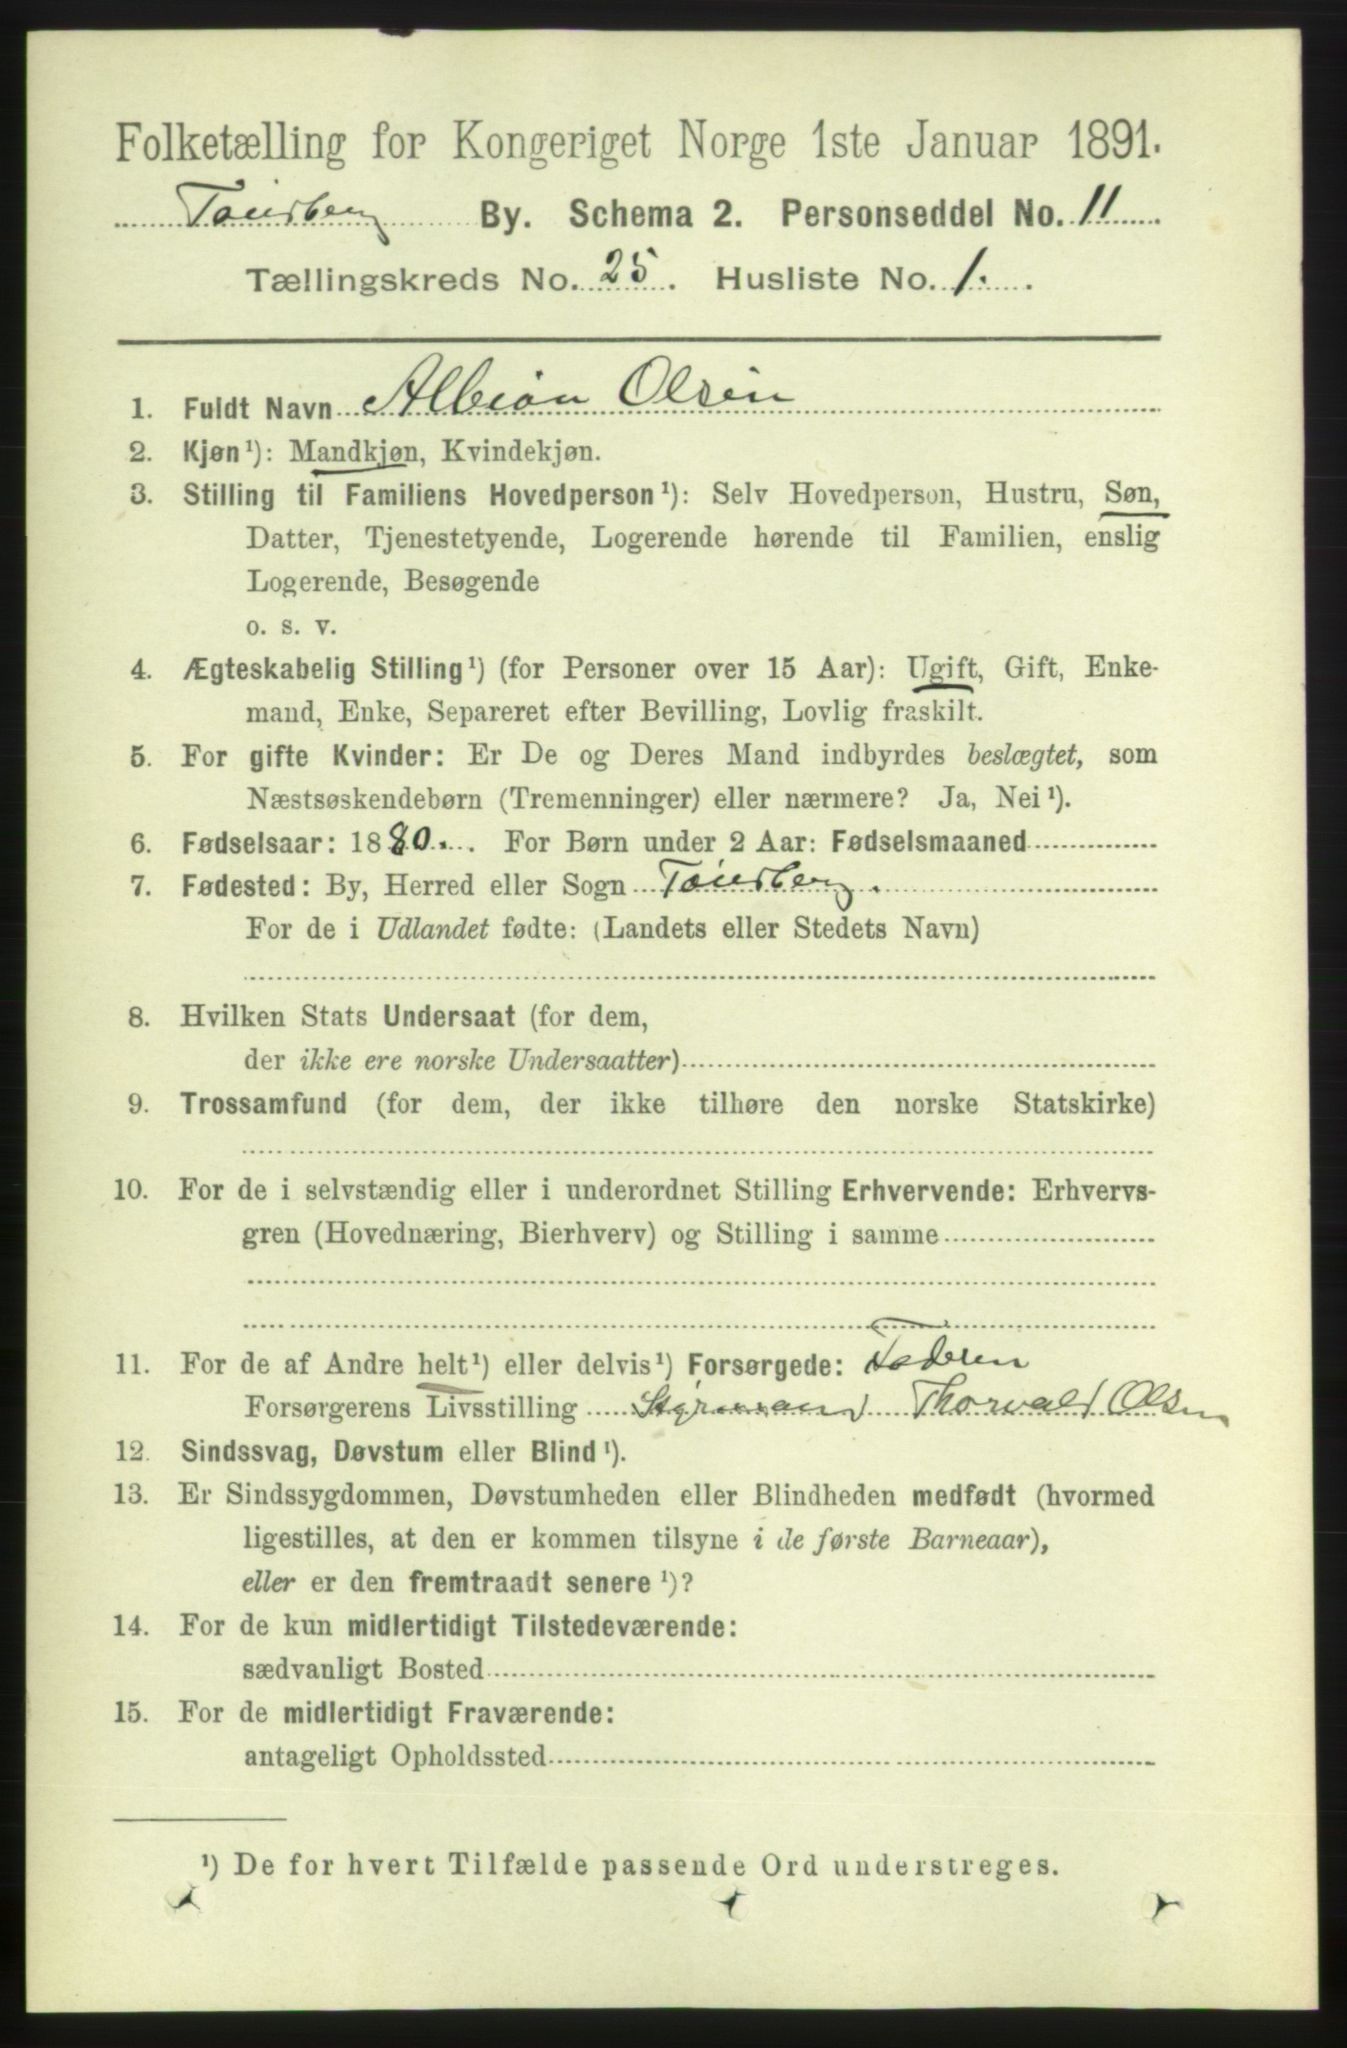 Folketælling for Kongeriget Norge 1ste Januar 1891.
Tønsberg By. Schema 2. Personseddel No. 11
Tællingskreds No. 25. Husliste No. 1.
1. Fuldt Navn Albion Olsen
2. Kjøn¹): Mandkjøn, Kvindekjøn.
3. Stilling til Familiens Hovedperson¹): Selv Hovedperson, Hustru, Søn,
Datter, Tjenestetyende, Logerende hørende til Familien, enslig
Logerende, Besøgende
o. s. v.
4. Ægteskabelig Stilling¹) (for Personer over 15 Aar): Ugift, Gift, Enke-
mand, Enke, Separeret efter Bevilling, Lovlig fraskilt.
5. For gifte Kvinder: Er De og Deres Mand indbyrdes beslægtet, som
Næstsøskendebørn (Tremenninger) eller nærmere? Ja, Nei¹).
6. Fødselsaar: 1880. For Børn under 2 Aar: Fødselsmaaned
7. Fødested: By, Herred eller Sogn Tønsberg.
For de i Udlandet fødte: (Landets eller Stedets Navn)
8. Hvilken Stats Undersaat (for dem,
der ikke ere norske Undersaatter)
9. Trossamfund (for dem, der ikke tilhøre den norske Statskirke)
10. For de i selvstændig eller i underordnet Stilling Erhvervende: Erhvervs-
gren (Hovednæring, Bierhverv) og Stilling i samme
11. For de af Andre helt¹) eller delvis¹) Forsørgede: Faderen
Forsørgerens Livsstilling Styrmand Thorvald Olsen
12. Sindssvag, Døvstum eller Blind¹).
13. Er Sindssygdommen, Døvstumheden eller Blindheden medfødt (hvormed
ligestilles, at den er kommen tilsyne i de første Barneaar),
eller er den fremtraadt senere¹)?
14. For de kun midlertidigt Tilstedeværende:
sædvanligt Bosted
15. For de midlertidigt Fraværende:
antageligt Opholdssted
¹) De for hvert Tilfælde passende Ord understreges.